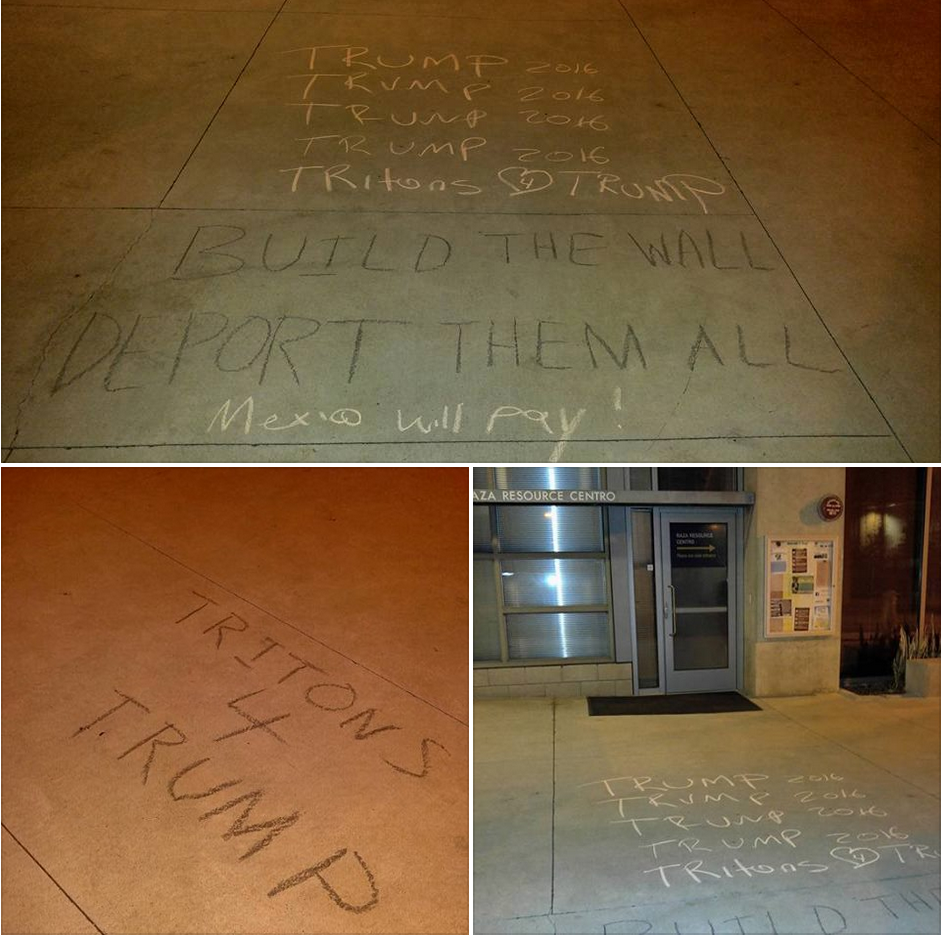 TRUMP 2016
TRUMP 2016
TRUMP 2016
TRUMP 2016
TRitons 4 TRUMP
BUILD THE WALL
DEPORT THEM ALL
Mexico will pay!
TRITONS
4
TRUMP
AZA RESOURCE CENTRO
RAZA RESOURCE
CENTRO
TRUMP 2016
TRUMP 2016
TRUMP 2016
TRUMP 2016
TRitons 4 TR
BUILD TH